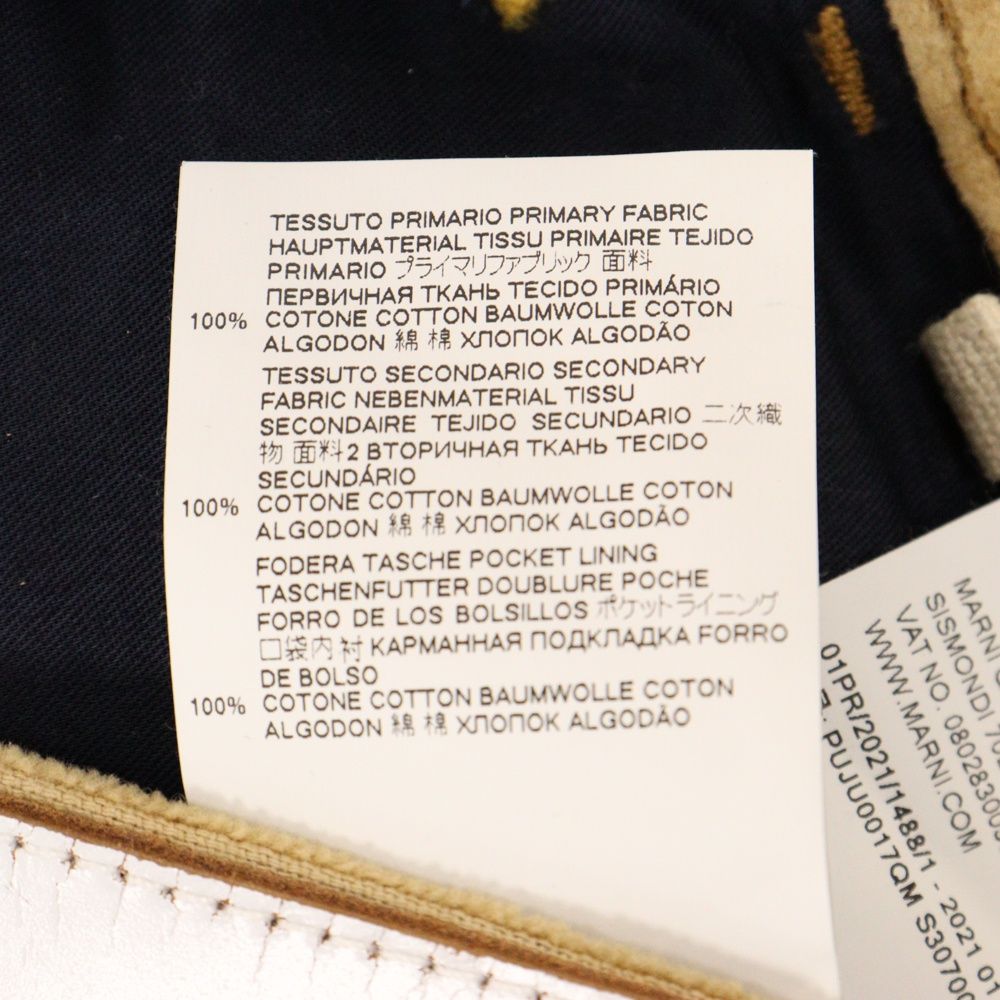 TESSUTO PRIMARIO PRIMARY FABRIC
HAUPTMATERIAL TISSU PRIMAIRE TEJIDO
PRIMARIO プライマリファブリック 面料
ПЕРВИЧНАЯ ТКАНЬ TECIDO PRIMÁRIO
100% COTONE COTTON BAUMWOLLE COTON
ALGODON 綿 棉 ХЛОПОК ALGODÃO
TESSUTO SECONDARIO SECONDARY
FABRIC NEBENMATERIAL TISSU
SECONDAIRE TEJIDO SECUNDARIO 二次織
物 面料2 ВТОРИЧНАЯ ТКАНЬ TECIDO
SECUNDÁRIO
100% COTONE COTTON BAUMWOLLE COTON
ALGODON 綿 棉 ХЛОПОК ALGODÃO
FODERA TASCHE POCKET LINING
TASCHENFUTTER DOUBLURE POCHE
FORRO DE LOS BOLSILLOS ポケットライニング
口袋内衬 КАРМАННАЯ ПОДКЛАДКА FORRO
DE BOLSO
100% COTONE COTTON BAUMWOLLE COTON
ALGODON 綿 棉 ХЛОПОК ALGODÃO
MARNI
SISMONDI
VAT NO.
WWW.MARNI.COM
01PR/2021/1488/1 - 2021 01
PUJU0017QM